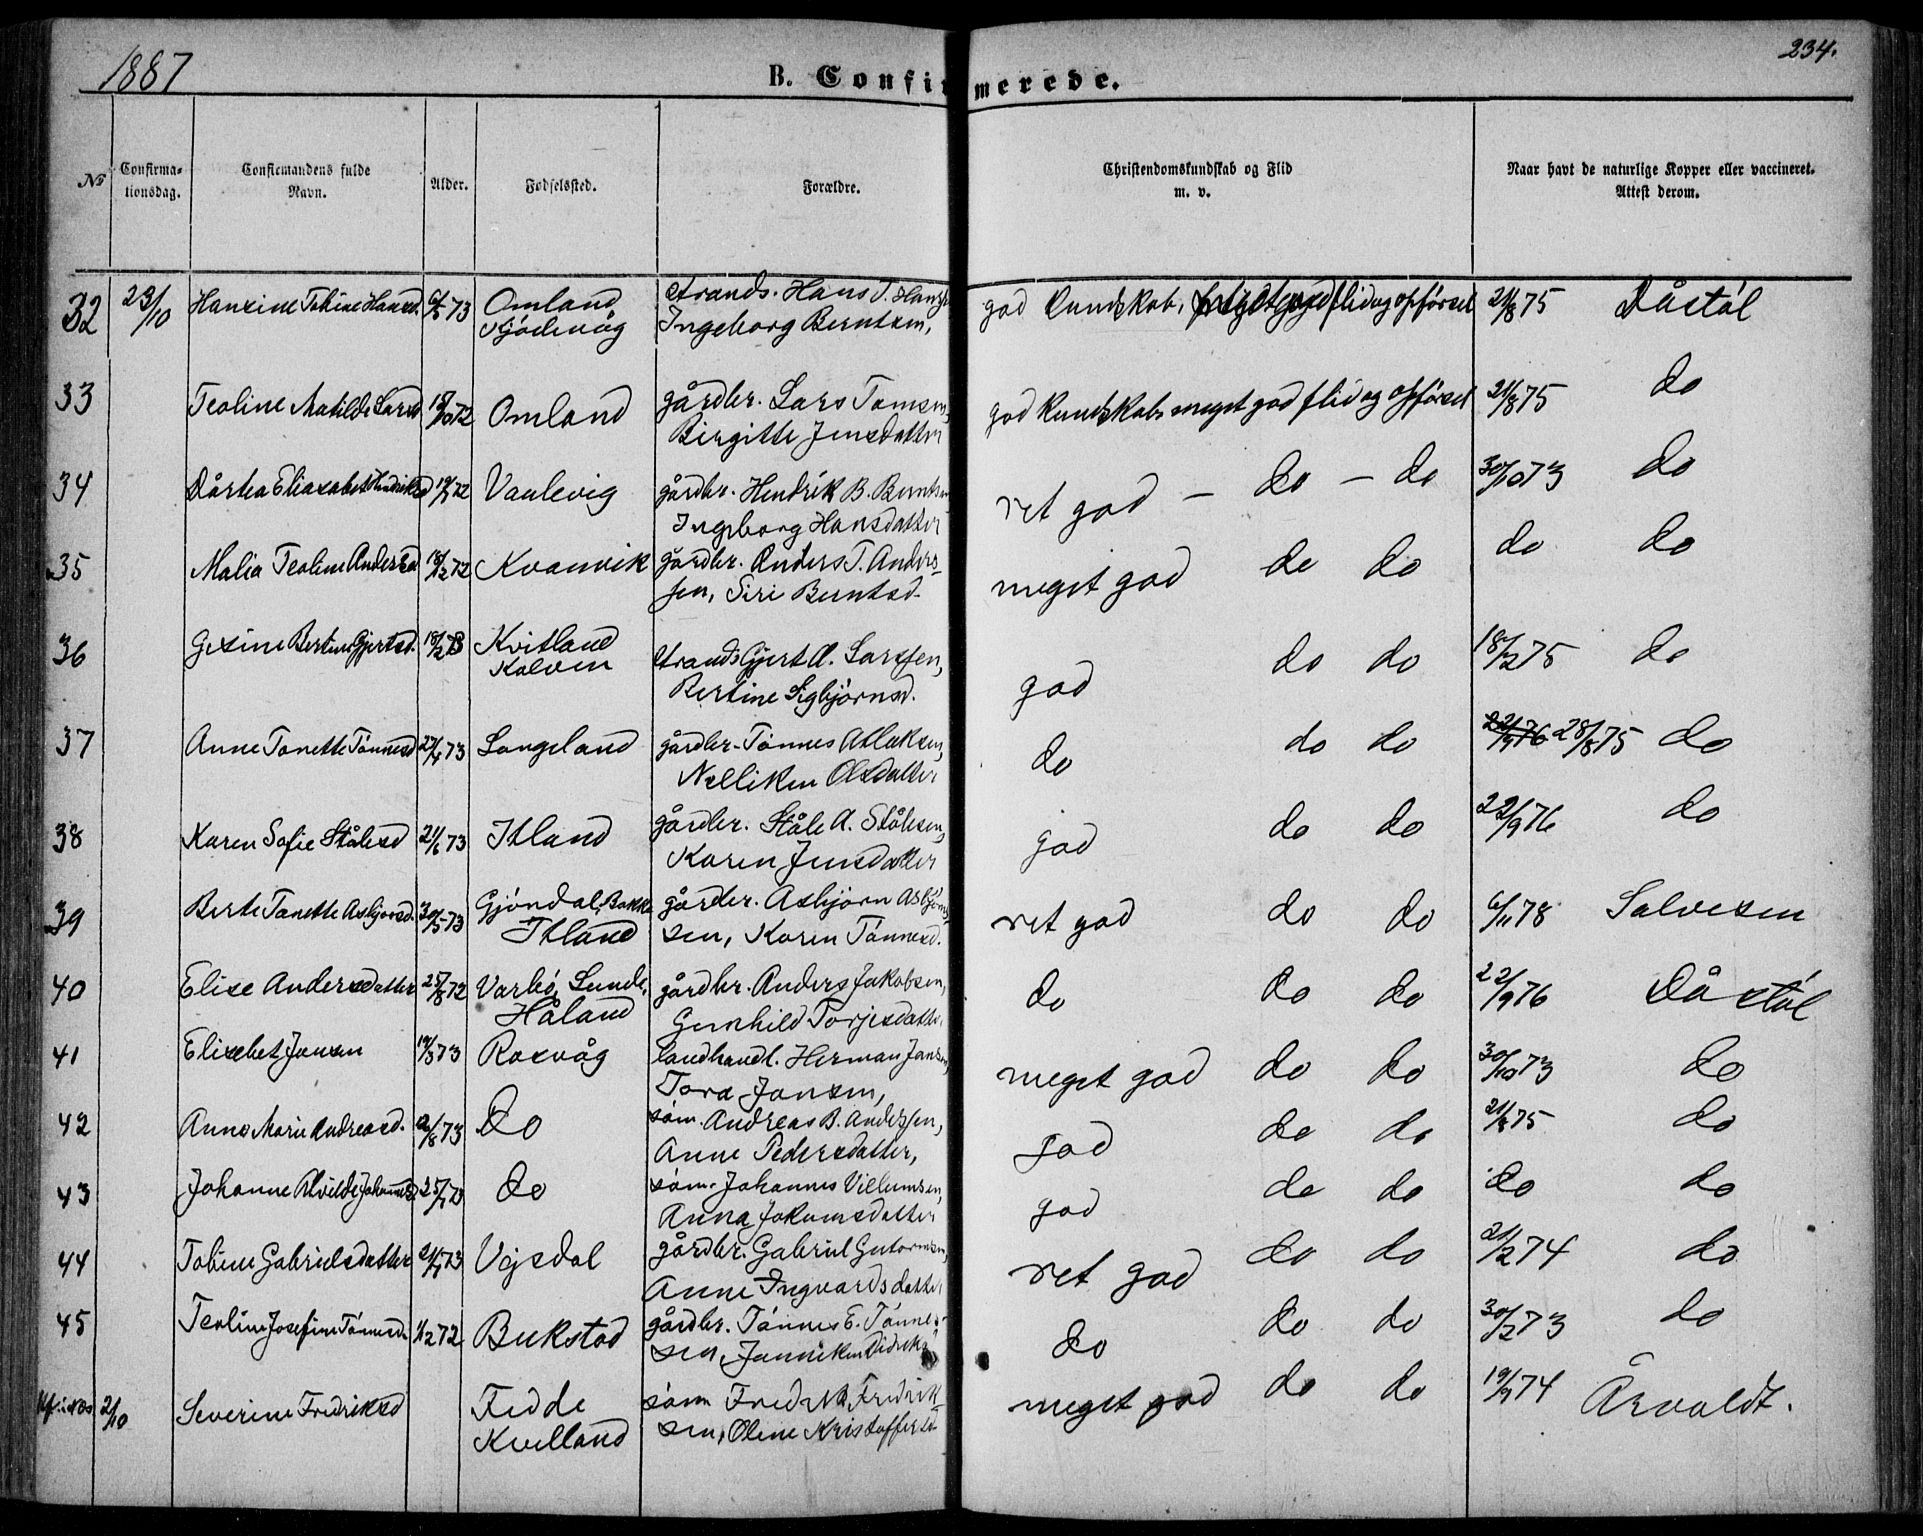 1887
B. Confirmerede.
234.
No
Confirmationsdag.
Confirmandens fulde Navn.
Alder.
Fødselssted.
Forældre.
Christendomskundskab og Flid m. v.
Naar havt de naturlige Kopper eller vaccineret. Attest derom.
32 23/10 Hansine Tobine Hansd. 73 Omland strands. Hans T. god Kundskab, flid og opførsel 21/8 75 Dåstøl
Gjødevåg Ingeborg Berntsen,
33 Teoline Matilde Larsd 72 Omland gårdbr. Lars Tomsen, god kundskab meget god flid og opførsel 21/8 75 do
Birgitte Jensdatter
34 Dårtea Elisabet Hendriksd 72 Vaulevig gårdbr. Hendrik B. Berntsen ret god - do - do 30/10 73 do
Ingeborg Hansdatter
35 Malia Teoline Andersd 18/12 72 Kvanvik gårdbr. Anders T. Anders- meget god do do do do
sen, Siri Berntsd.
36 Gesine Bertine Gjertsd. 18/2 73 Kvitland strands Gjert A. Larssen, god do do 18/2 75 do
Kalven Bertine Sigbjørnsd.
37 Anne Tonette Tønnesd 27/4 73 Langeland gårdbr. Tønnes Atlaksen, do do do 22/9 76 28/8 75 do
Nelliken Olsdatter
38 Karen Sofie Stålesd 21/6 73 Itland gårdbr. Ståle A. Stålesen, god do do 22/9 76 do
Karen Jensdatter
39 Berte Tonette Asbjørsd. 30/5 73 Gjøndal, Bakke gårdbr. Asbjørn Asbjørn- ret god do do 6/11 78 Salvesen
Itland sen, Karen Tønnesd.
40 Elise Andersdatter 25/8 72 Varbø, Lunde, gårdbr. Anders Jakobsen, do do do 22/9 76 Dåstøl
Håland Gunhild Torjesdatter,
41 Elisebet Jansen 19/3 73 Rasvåg landhandl. Herman Jansen, meget god do do 30/10 73 do
Tora Jansen,
42 Anne Marie Andreasd. 12/8 73 do søm. Andreas B. Anderssen, god do do 21/8 75 do
Anne Pedersdatter,
43 Johanne Alvilde Johannesd 25/7 73 do søm. Johannes Villumsen, god do do do do
Anna Jokumsdatter
44 Tobine Gabrielsdatter 73 Vejsdal gårdbr. Gabriel Gutormsen, ret god do do 21/2 74 do
Anne Ingvardsdatter
45 Teoline Josefine Tønnesd 72 Bukstad gårdbr. Tønnes E. Tønne- do do do 30/2 73 do
sen, Janniken Didriksd
2/10 Severine Fredriksd Fedde søm Fredr. M. Fredrik- meget god do do 19/9 74 Årvoldt.
Kvelland sen, Oline Kristoffersd